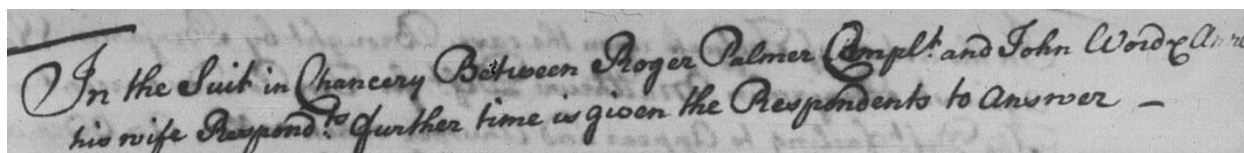 In the Suit in Chancery Between Roger Palmer Complt. and John Word & Anne
his wife Respondts. further time is given the Respondents to Answer —